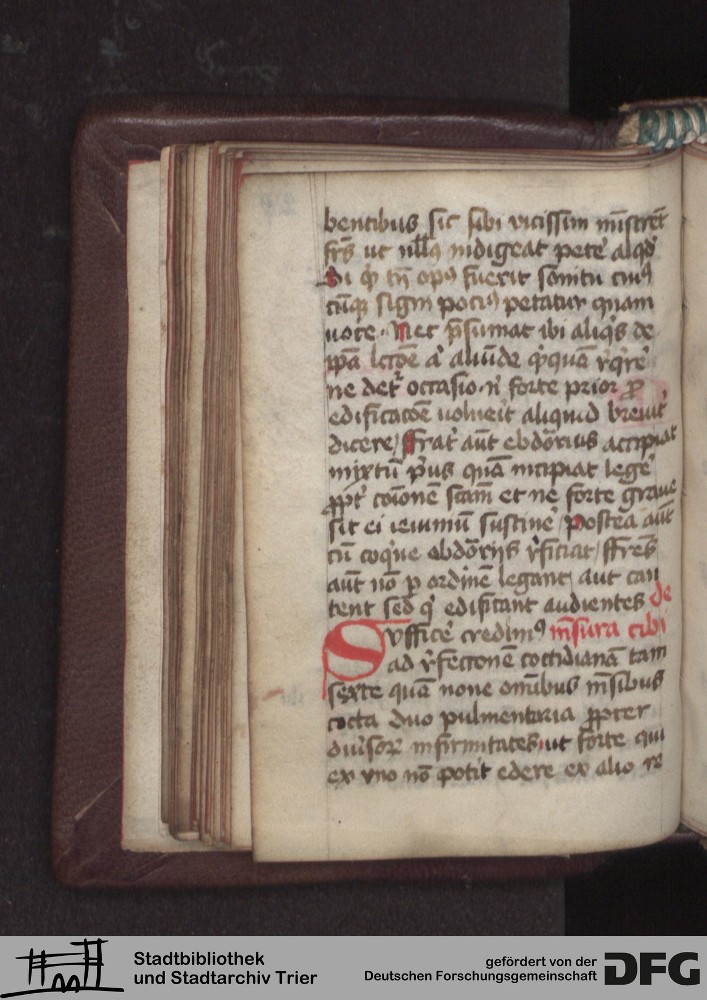 bentibus sic sibi vicissim mīstrēt
frēs ut nullꝯ indigeat peteˀ aliqͥd
Si qͥd tn̄ opꝯ fuerit sonitu cuiꝯ
cūqꝫ signi pociꝯ petatur quam
uoce. Nec p̄sumat ibi aliqͥs de
ip̄a lectōe aˀ aliūde qͥcquā rͤqͥreˀ
ne detˀ occasio. nͥ forte prior ꝓ
edificatōe uolueͥit aliquid breuitˀ
dicere / Fratˀ aūt ebdōarius accipiat
mixtū pͥus quā incipiat legeˀ
ꝓptˀ cōionē sc̄am et ne forte graue
sit ei ieiuniū sustineˀ / postea aūt
cū coqͥne ebdōarijs rͤficiat / Ffrēs
aūt nō ꝑ ordinē legant / aut can
tent sed qͥ edificant audientes de
Sufficeˀ credimꝯ mēsura cibi
ad rͤfectionē cottidianā tam
sexte quā none omībus mēsibus
cocta duo pulmentaria ꝓpter
diuˀsoꝝ infirmitates ut forte qui
ex vno nō potͥit edere ex alio re
Stadtbibliothek
und Stadtarchiv Trier
gefördert von der
Deutschen Forschungsgemeinschaft
DFG